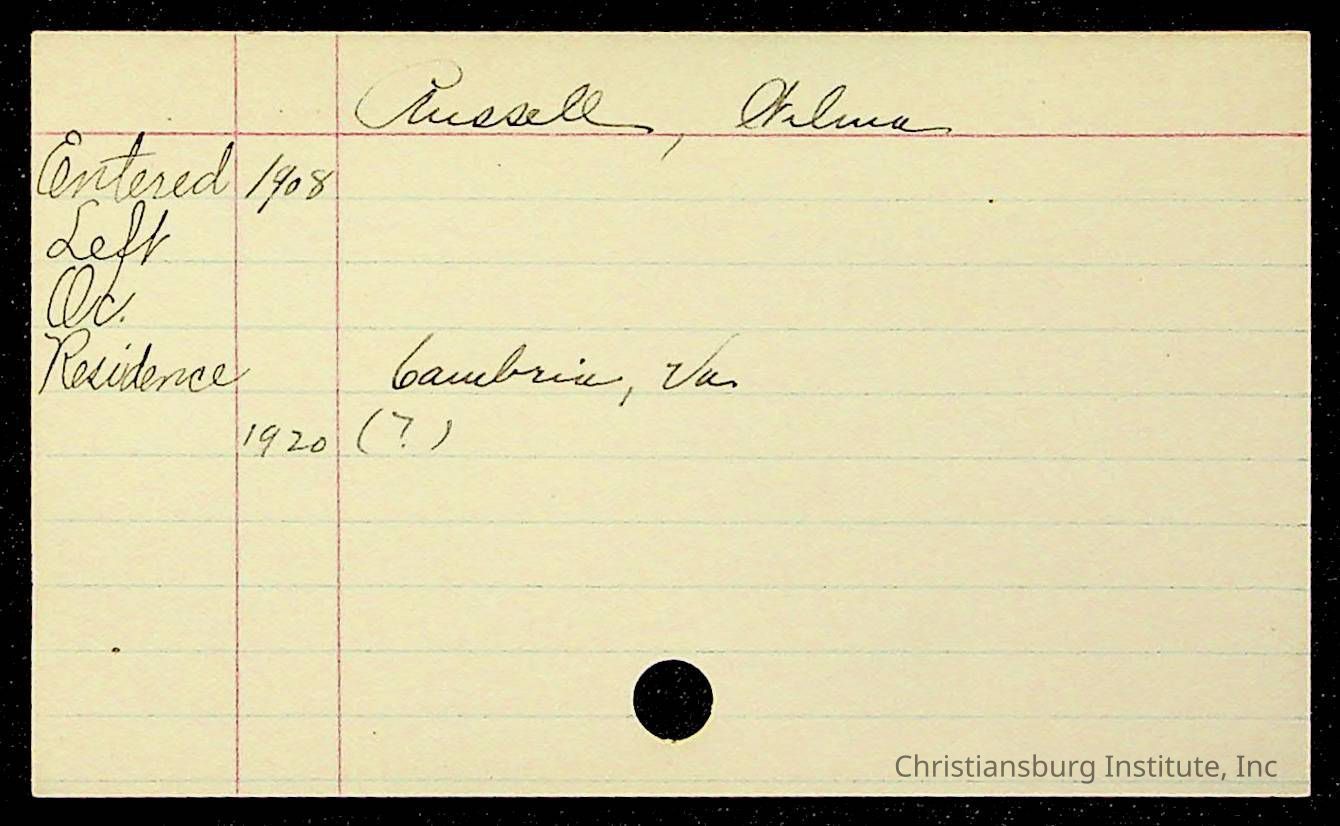 Russell, Wilma
Entered 1908
Left
Oc.
Residence Cambria, Va.
1920 (?)
Christiansburg Institute, Inc